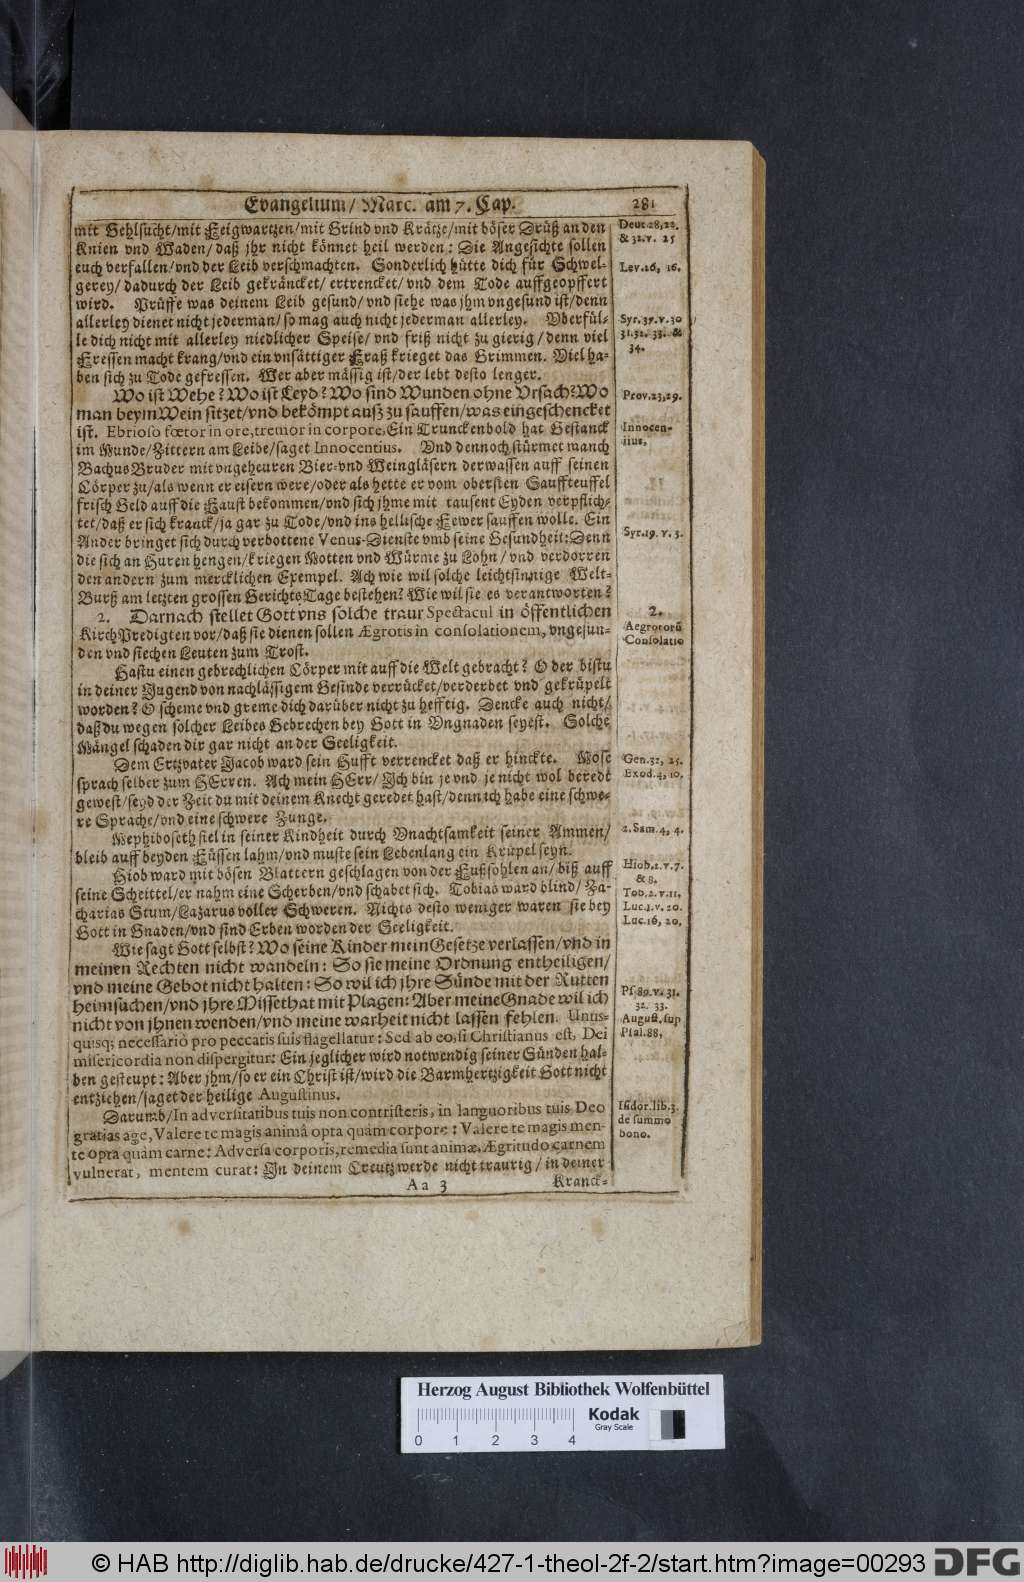 Evangelium/ Marc. am 7. Cap. 281
mit Gehlsucht/mit Feigwartzen/mit Grind vnd Krätze/mit böser Drüß an den
Knien vnd Waden/ daß jhr nicht könnet heil werden: Die Angesichte sollen
euch verfallen/vnd der Leib verschmachten. Sonderlich hütte dich für Schwel-
gerey/ dadurch der Leib gekräncket/ ertrencket/ vnd dem Tode auffgeopffert
wird. Prüffe was deinem Leib gesund/ vnd siehe was jhm vngesund ist/denn
allerley dienet nicht jederman/ so mag auch nicht jederman allerley. Vberfül-
le dich nicht mit allerley niedlicher Speise/ vnd friß nicht zu gierig/ denn viel
Fressen macht krang/vnd ein vnsättiger Fraß krieget das Grimmen. Viel ha-
ben sich zu Tode gefressen. Wer aber mässig ist/der lebt desto lenger.
Wo ist Wehe? Wo ist Leyd? Wo sind Wunden ohne Vrsach? Wo
man beym Wein sitzet/vnd bekömpt ausz zu sauffen/was eingeschencket
ist. Ebrioso fœtor in ore, tremor in corpore, Ein Trunckenbold hat Gestanck
im Munde/Zittern am Leibe/saget Innocentius. Vnd dennoch stürmet manch
Bachus Bruder mit vngeheuren Bier-vnd Weingläsern dermassen auff seinen
Cörper zu/als wenn er eisern were/oder als hette er vom obersten Sauffteuffel
frisch Geld auff die Faust bekommen/vnd sich jhme mit tausent Eyden verpflich-
tet/daß er sich kranck/ja gar zu Tode/vnd ins hellische Fewer sauffen wolle. Ein
Ander bringet sich durch verbottene Venus-Dienste vmb seine Gesundheit: Denn
die sich an Huren hengen/kriegen Motten vnd Würme zu Lohn/ vnd verdorren
den andern zum mercklichen Exempel. Ach wie wil solche leichtsinnige Welt-
Burß am letzten grossen Gerichts Tage bestehen? Wie wil sie es verantworten?
2. Darnach stellet Gott vns solche traur Spectacul in öffentlichen
KirchPredigten vor/daß sie dienen sollen Ægrotis in consolationem, vngesun-
den vnd siechen Leuten zum Trost.
Hastu einen gebrechlichen Cörper mit auff die Welt gebracht? Oder bistu
in deiner Jugend von nachlässigem Gesinde verrücket/verderbet vnd gekrüpelt
worden? O scheme vnd greme dich darüber nicht zu hefftig. Dencke auch nicht/
daß du wegen solcher Leibes Gebrechen bey Gott in Vngnaden seyest. Solche
Mängel schaden dir gar nicht an der Seeligkeit.
Dem Ertzvater Jacob ward sein Hufft verrencket daß er hinckte. Mose
sprach selber zum HErren. Ach mein HErr/ Ich bin je vnd je nicht wol beredt
gewest/seyd der Zeit du mit deinem Knecht geredet hast/denn ich habe eine schwe-
re Sprache/vnd eine schwere Zunge.
Mephiboseth fiel in seiner Kindheit durch Vnachtsamkeit seiner Ammen/
bleib auff beyden Füssen lahm/vnd muste sein Lebenlang ein Krüpel seyn.
Hiob ward mit bösen Blattern geschlagen von der Fußsohlen an/ biß auff
seine Scheittel/er nahm eine Scherben/vnd schabet sich. Tobias ward blind/ Za-
charias Stum/Lazarus voller Schweren. Nichts desto weniger waren sie bey
Gott in Gnaden/vnd sind Erben worden der Seeligkeit.
Wie sagt Gott selbst? Wo seine Kinder mein Gesetze verlassen/vnd in
meinen Rechten nicht wandeln: So sie meine Ordnung entheiligen/
vnd meine Gebot nicht halten: So wil ich jhre Sünde mit der Rutten
heimsuchen/vnd jhre Missethat mit Plagen: Aber meine Gnade wil ich
nicht von jhnen wenden/vnd meine warheit nicht lassen fehlen. Unus-
quisq; necessariò pro peccatis suis flagellatur: Sed ab eo, si Christianus est, Dei
misericordia non dispergitur: Ein jeglicher wird notwendig seiner Sünden hal-
ben gesteupt: Aber jhm/so er ein Christ ist/wird die Barmhertzigkeit Gott nicht
entziehen/saget der heilige Augustinus.
Darumb/In adversitatibus tuis non contristeris, in languoribus tuis Deo
gratias age, Valere te magis animâ opta quàm corpore: Valere te magis men-
te opta quàm carne: Adversa corporis, remedia sunt animæ. Ægritudo carnem
vulnerat, mentem curat: In deinem Creutz werde nicht traurig/ in deiner
Aa 3 Kranck-
Deut. 28, 22.
& 32. v. 25
Lev. 26, 16.
Syr. 37. v. 30
31. 32. 33. &
34.
Prov. 23, 29.
Innocen-
tius.
Syr. 19. v. 3.
2.
Aegrotorũ
Consolatio
Gen. 32, 25.
Exod. 4, 10.
2. Sam. 4, 4.
Hiob. 2. v. 7.
& 8.
Tob. 2. v. 11.
Luc. 1. v. 20.
Luc. 16, 20.
Ps. 89. v. 31.
32. 33.
August. sup
Psal. 88.
Isidor. lib. 3.
de summo
bono.
Herzog August Bibliothek Wolfenbüttel
Kodak
Gray Scale
0 1 2 3 4
© HAB http://diglib.hab.de/drucke/427-1-theol-2f-2/start.htm?image=00293
DFG